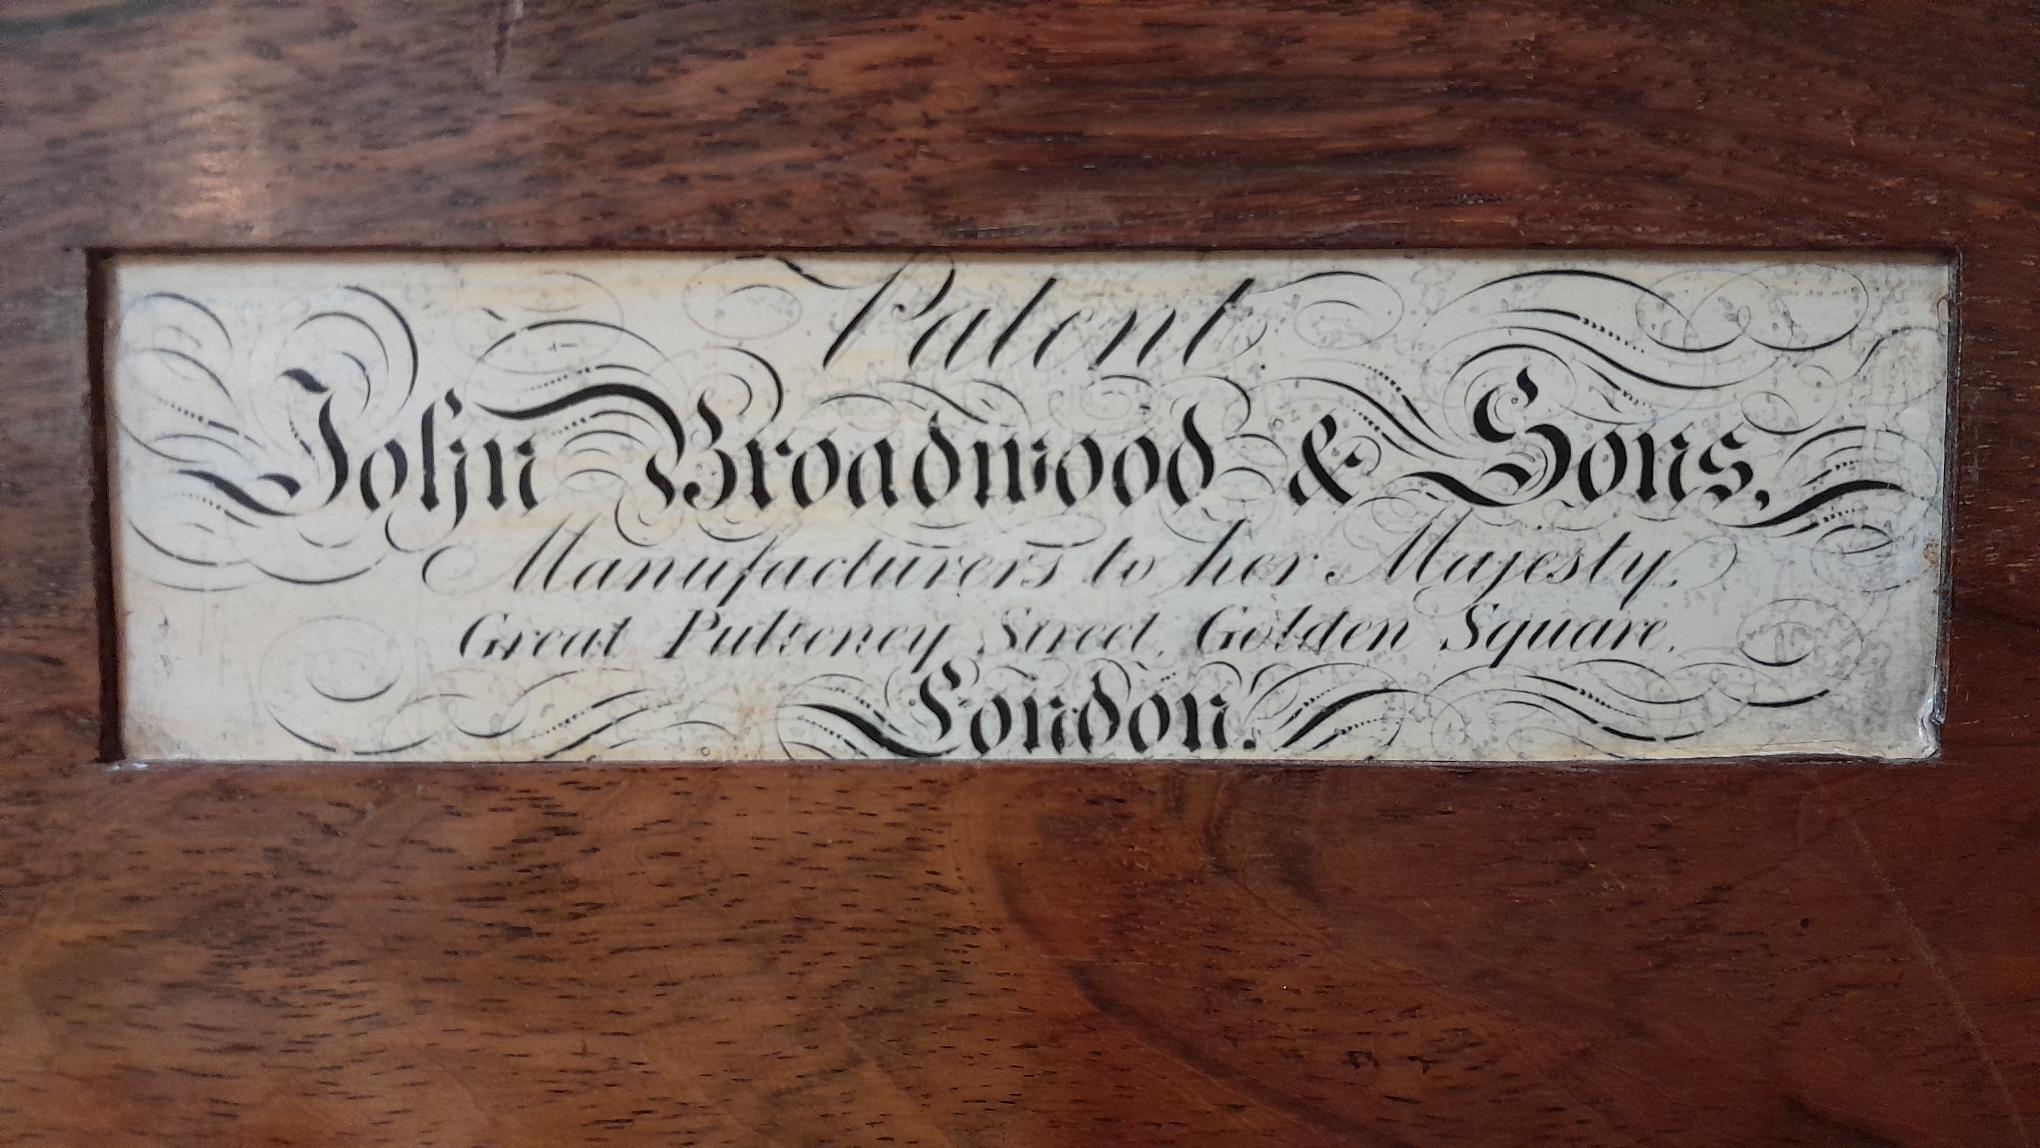 Patent
John Broadwood & Sons,
Manufacturers to her Majesty,
Great Pulteney Street, Golden Square,
London.